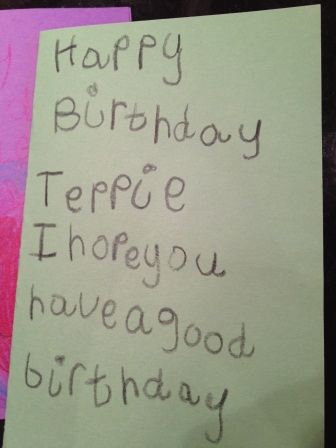 Happy
Birthday
Teppie
I hope you
have a good
birthday